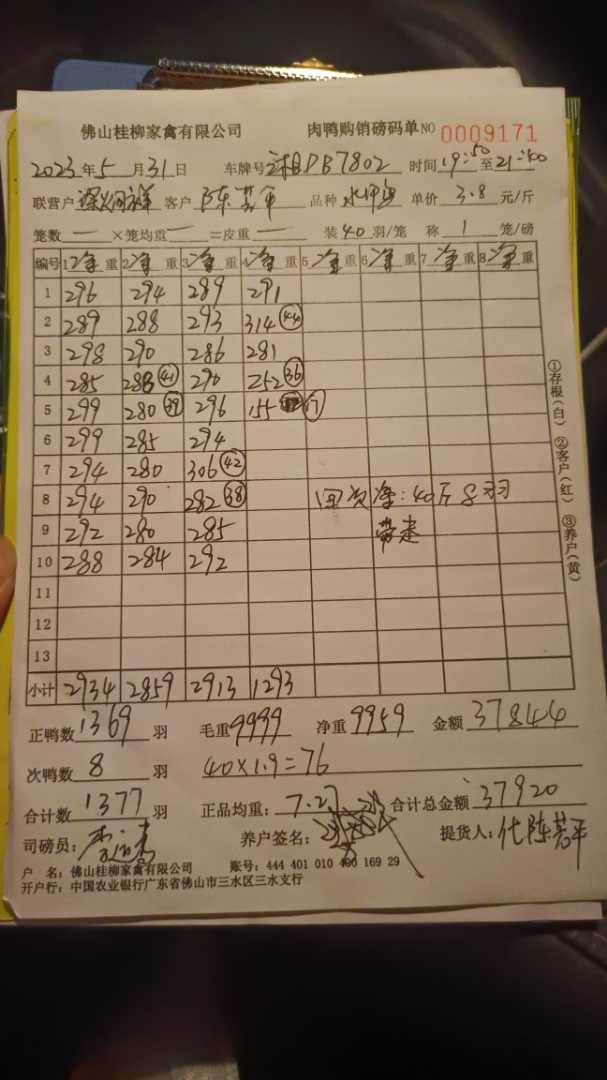 佛山桂柳家禽有限公司 肉鸭购销磅码单 NO 0009171
2023年5月31日 车牌号 DB7802 时间 19:50 至 21:40
联营户 客户 陈 平 品种 单价 3.8 元/斤
笼数 一 ×笼均重 一 =皮重 一 装 40 羽/笼 称 1 笼/磅
编号 1净重 2净重 3净重 4净重 5净重 6净重 7净重 8净重
1 296 294 289 291
2 289 288 293 314 44
3 298 290 286 281
4 285 288 41 290 252 36
5 299 280 39 296 155 17
6 299 285 294
7 294 280 306 42
8 294 290 282 38 次净:40斤8羽
9 292 280 285 带走
10 288 284 292
11
12
13
小计 2934 2859 2913 1293
正鸭数 1369 羽 毛重 9999 净重 9959 金额 37844
次鸭数 8 羽 40×1.9=76
合计数 1377 羽 正品均重: 7.27 合计总金额 37920
司磅员: 养户签名: 提货人: 代陈 平
户 名:佛山桂柳家禽有限公司 账号:444 401 010 400 169 29
开户行:中国农业银行广东省佛山市三水区三水支行
①存根(白) ②客户(红) ③养户(黄)